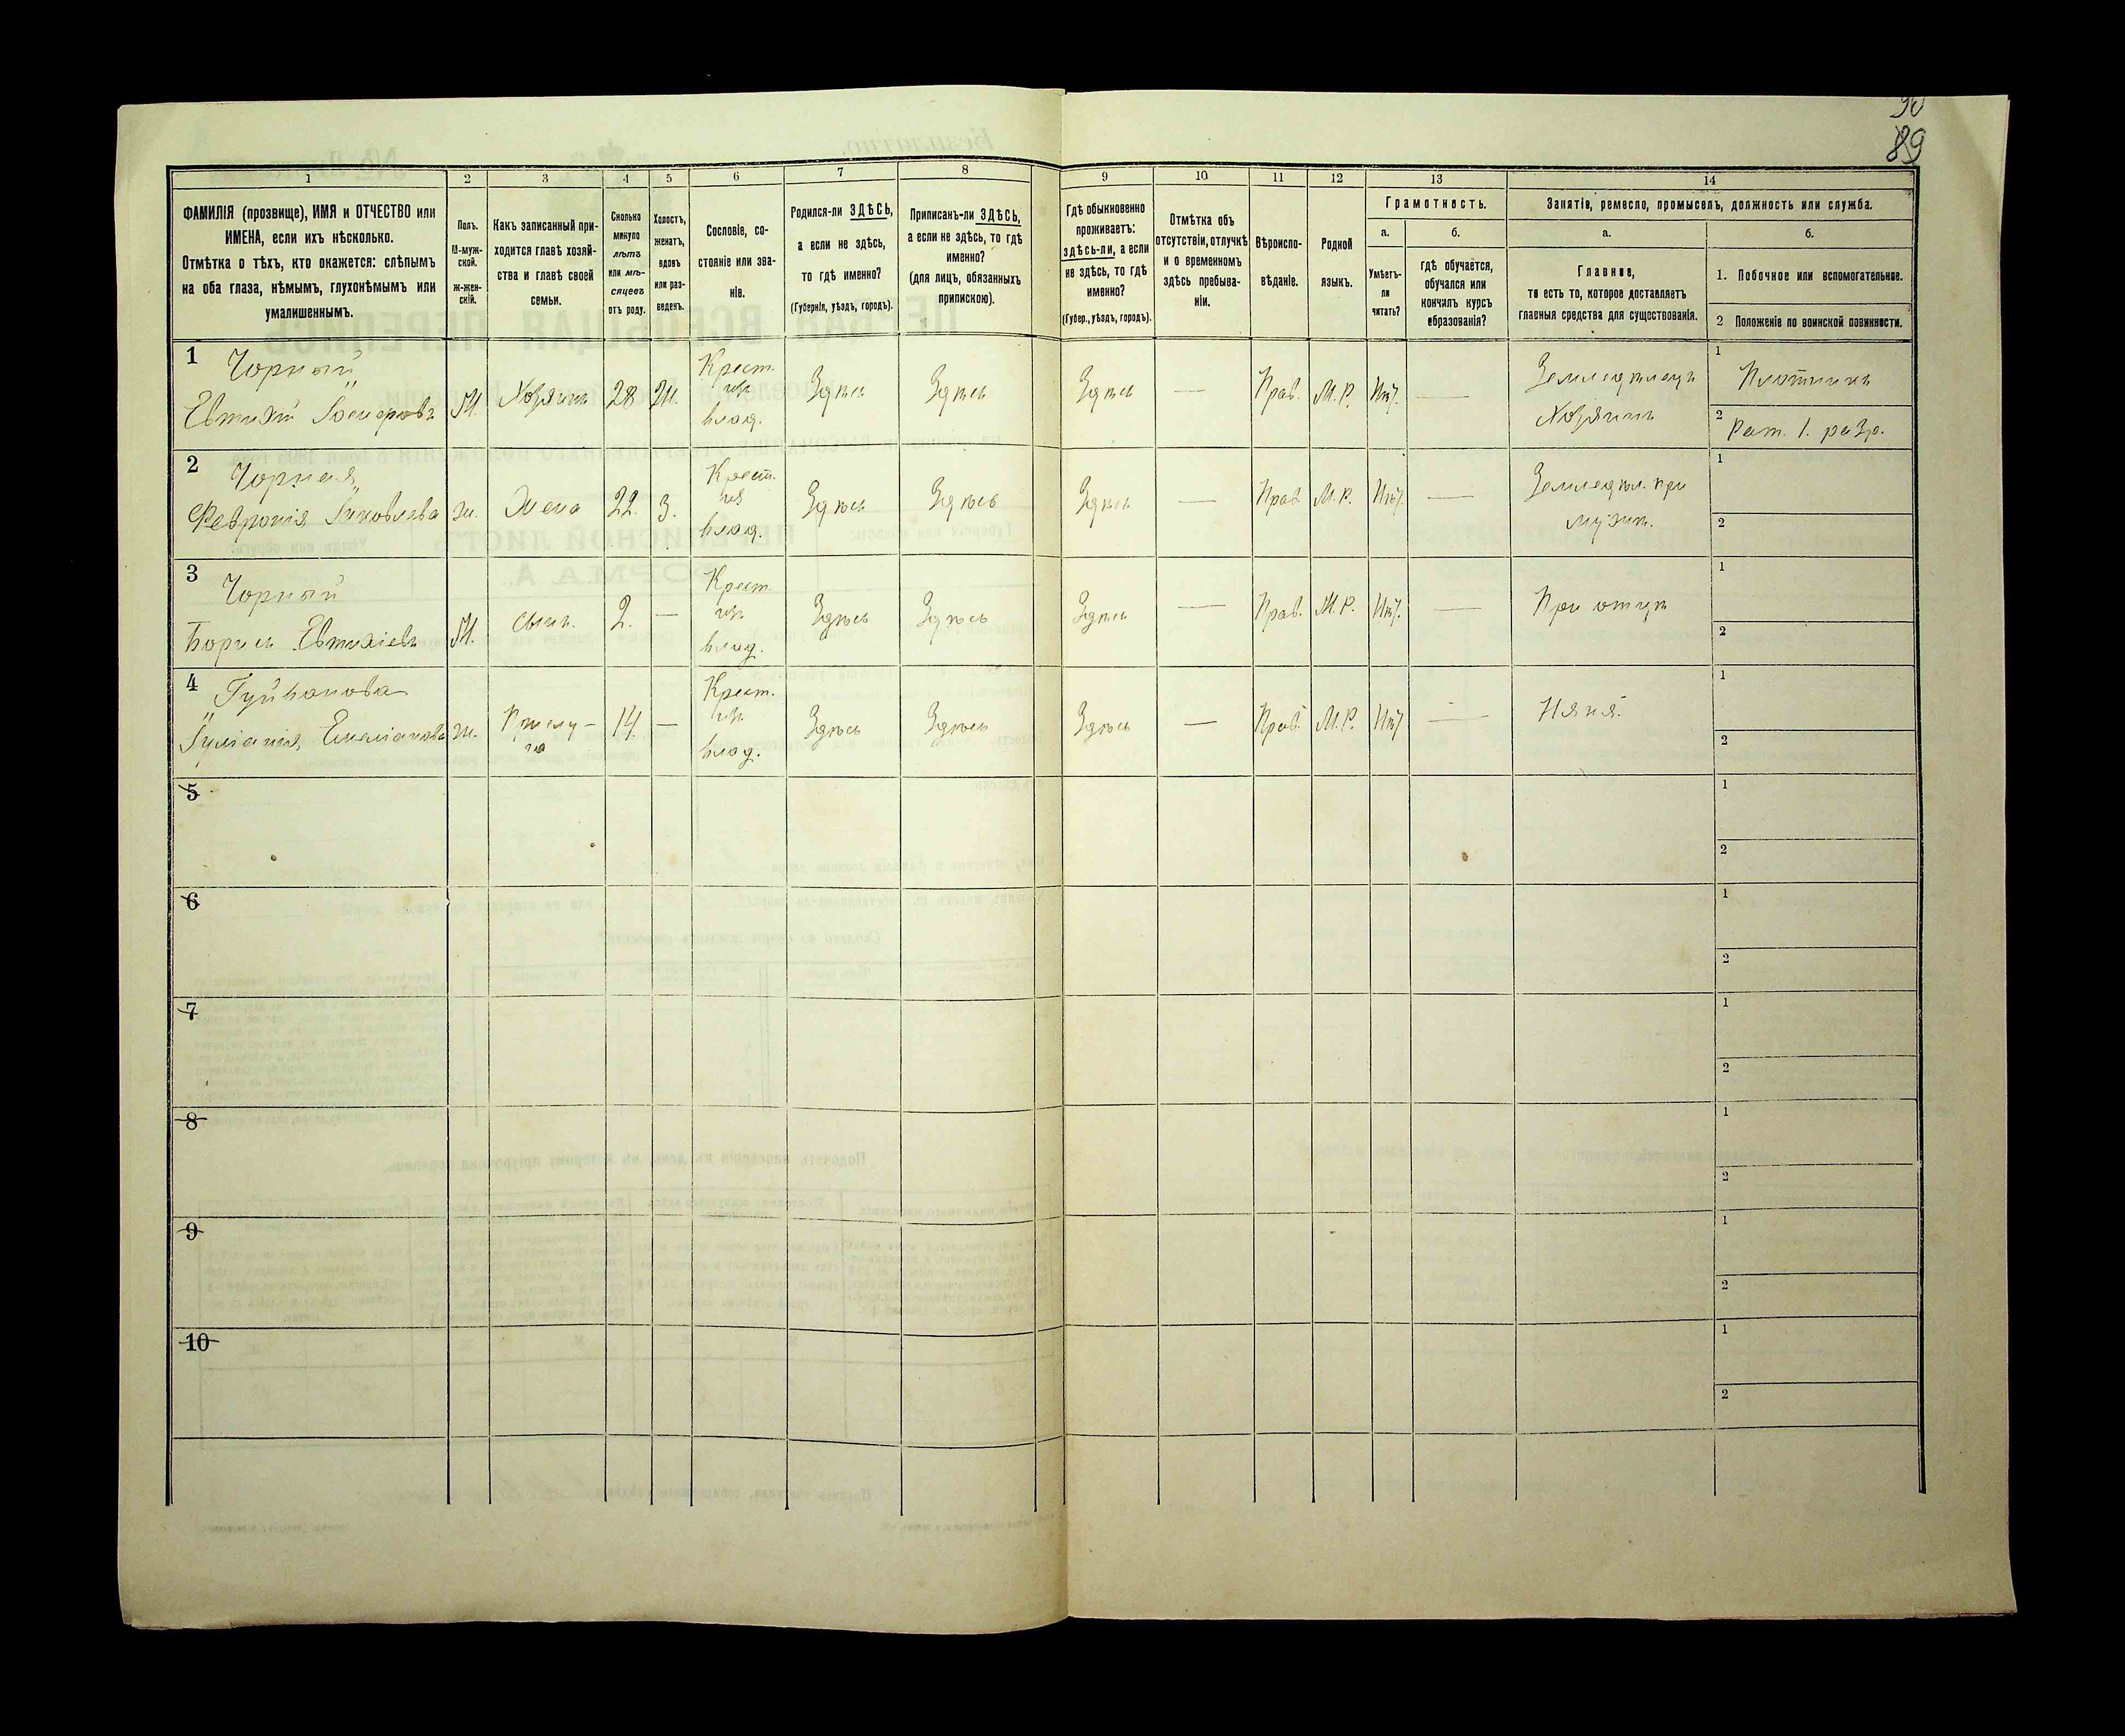 90
89
1
2
3
4
5
6
7
8
9
10
11
12
13
14
ФАМИЛІЯ (прозвище), ИМЯ и ОТЧЕСТВО или
ИМЕНА, если ихъ нѣсколько.
Отмѣтка о тѣхъ, кто окажется: слѣпымъ
на оба глаза, нѣмымъ, глухонѣмымъ или
умалишеннымъ.
Полъ.
М-муж-
ской.
ж-жен-
скій.
Какъ записанный при-
ходится главѣ хозяй-
ства и главѣ своей
семьи.
Сколько
минуло
лѣтъ
или мѣ-
сяцевъ
отъ роду.
Холостъ,
женатъ,
вдовъ
или раз-
веденъ.
Сословіе, со-
стояніе или зва-
ніе.
Родился-ли ЗДѢСЬ,
а если не здѣсь,
то гдѣ именно?
(Губернія, уѣздъ, городъ).
Приписанъ-ли ЗДѢСЬ,
а если не здѣсь, то гдѣ
именно?
(для лицъ, обязанныхъ
припискою).
Гдѣ обыкновенно
проживаетъ:
здѣсь-ли, а если
не здѣсь, то гдѣ
именно?
(Губер., уѣздъ, городъ).
Отмѣтка объ
отсутствіи, отлучкѣ
и о временномъ
здѣсь пребыва-
ніи.
Вѣроиспо-
вѣданіе.
Родной
языкъ.
Грамотность.
а.
Умѣетъ-
ли
читать?
б.
гдѣ обучается,
обучался или
кончилъ курсъ
образованія?
Занятіе, ремесло, промыселъ, должность или служба.
а.
Главное,
то есть то, которое доставляетъ
главныя средства для существованія.
б.
1. Побочное или вспомогательное.
2 Положеніе по воинской повинности.
1 Чорный
Евтихій М. Хозяинъ 28 Ж. Крест. изъ влад. Здѣсь Здѣсь Здѣсь — Прав. М.Р. Нѣт. — Земледѣлецъ Хозяинъ
1 Плотникъ
2 Рат. 1. разр.
2 Чорная
Февронія Яковлева ж. Жена 22. З. Крест. из влад. Здѣсь Здѣсь Здѣсь — Прав. М.Р. Нѣт. — Земледѣл. при мужѣ.
1
2
3 Чорный
Борисъ Евтихіевъ М. Сынъ. 2. — Крест. изъ влад. Здѣсь Здѣсь Здѣсь — Прав. М.Р. Нѣт. — При отцѣ
1
2
4
Емеліанова ж. 14. — Крест. изъ влад. Здѣсь Здѣсь Здѣсь — Прав. М.Р. Нѣт — Няня.
1
2
5
1
2
6
1
2
7
1
2
8
1
2
9
1
2
10
1
2